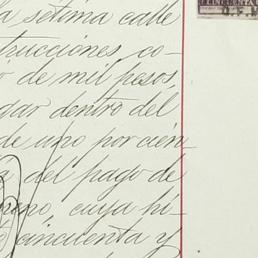 la setima calle
trucciones co-
r de mil pesos,
gar dentro del
de uno por cien-
del pago de
cuya hi-
cincuenta y
CINCUENTA